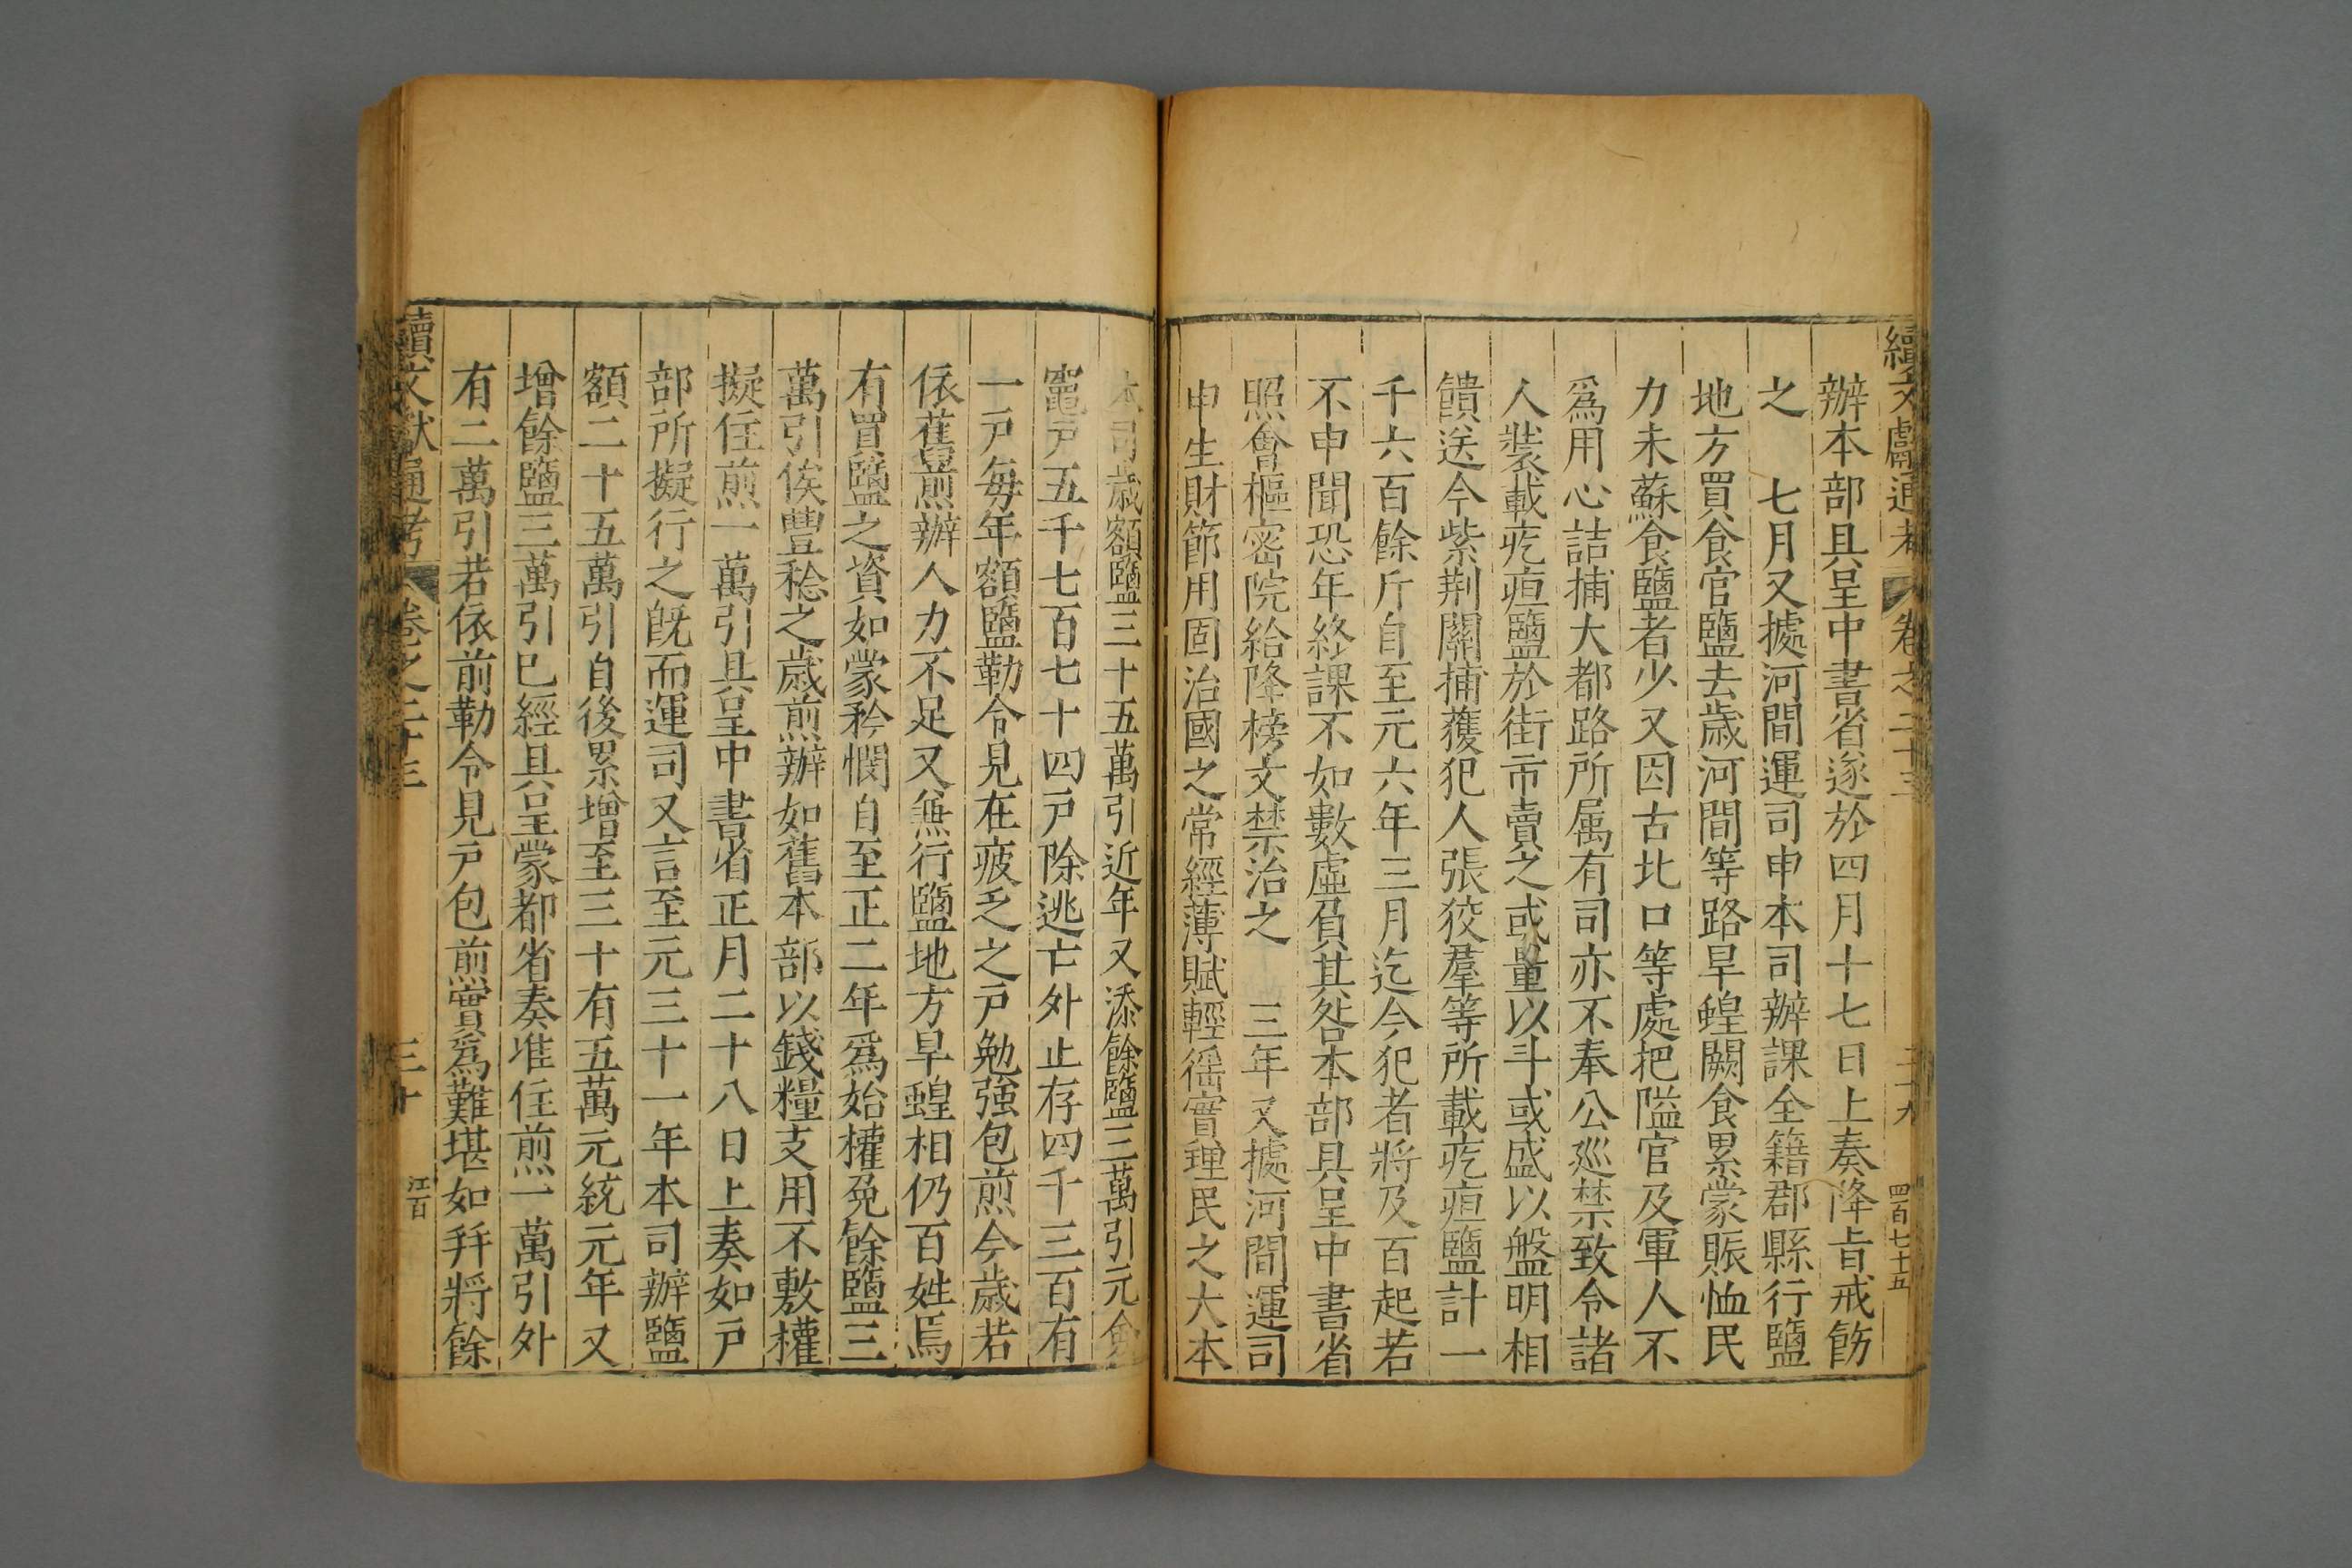 續文獻通考 卷之二十三 二十九 四百七十五
辦本部具呈中書省遂於四月十七日上奏降旨戒飭
之 七月又據河間運司申本司辦課全籍郡縣行鹽
地方買食官鹽去歲河間等路旱蝗闕食累蒙賑恤民
力未蘇食鹽者少又因古北口等處把隘官及軍人不
爲用心詰捕大都路所属有司亦不奉公廵禁致令諸
人裝載疙疸鹽於街市賣之或量以斗或盛以盤明相
饋送今紫荆關捕獲犯人張狡羣等所載疙疸鹽計一
千六百餘斤自至元六年三月迄今犯者將及百起若
不申聞恐年終課不如數虛負其咎本部具呈中書省
照會樞密院給降榜文禁治之 三年又據河間運司
申生財節用固治國之常經薄賦輕徭實理民之大本
本司歲額鹽三十五萬引近年又添餘鹽三萬引元僉
竈戸五千七百七十四戸除逃亡外止存四千三百有
一戸毎年額鹽勒令見在疲乏之戸勉強包煎今歲若
依舊煎辦人力不足又無行鹽地方旱蝗相仍百姓焉
有買鹽之資如蒙矜憫自至正二年爲始權免餘鹽三
萬引俟豐稔之歲煎辦如舊本部以錢糧支用不敷權
擬住煎一萬引具呈中書省正月二十八日上奏如戸
部所擬行之旣而運司又言至元三十一年本司辦鹽
額二十五萬引自後累增至三十有五萬元統元年又
增餘鹽三萬引已經具呈蒙都省奏准住煎一萬引外
有二萬引若依前勒令見戸包煎實爲難堪如幷將餘
續文獻通考 卷之二十三 三十 江百